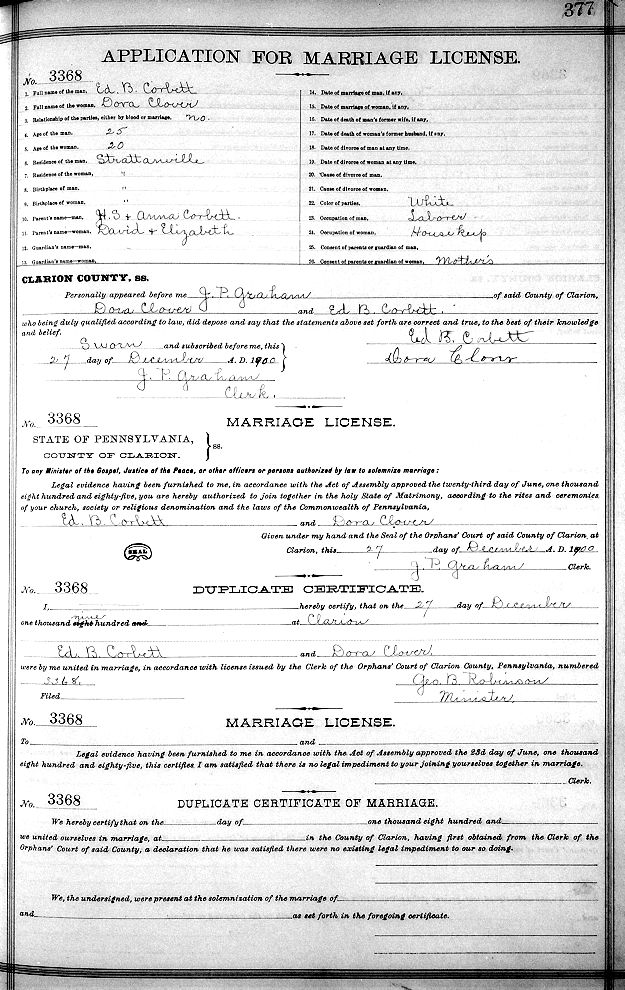 377
APPLICATION FOR MARRIAGE LICENSE.
No. 3368
1. Full name of the man, Ed. B. Corbett
2. Full name of the woman, Dora Clover
3. Relationship of the parties, either by blood or marriage, no.
4. Age of the man, 25
5. Age of the woman, 20
6. Residence of the man, Strattanville
7. Residence of the woman, "
8. Birthplace of man, "
9. Birthplace of woman, "
10. Parent's name—man, H. S & Anna Corbett.
11. Parent's name—woman, David & Elizabeth
12. Guardian's name—man,
13. Guardian's name—woman,
14. Date of marriage of man, if any,
15. Date of marriage of woman, if any,
16. Date of death of man's former wife, if any,
17. Date of death of woman's former husband, if any,
18. Date of divorce of man at any time,
19. Date of divorce of woman at any time,
20. Cause of divorce of man,
21. Cause of divorce of woman,
22. Color of parties, White
23. Occupation of man, Laborer
24. Occupation of woman, Housekeep
25. Consent of parents or guardian of man,
26. Consent of parents or guardian of woman, Mother's
CLARION COUNTY, ss.
Personally appeared before me J. P. Graham of said County of Clarion,
Dora Clover and Ed B. Corbett.
who being duly qualified according to law, did depose and say that the statements above set forth are correct and true, to the best of their knowledge
and belief.
Sworn and subscribed before me, this
27 day of December A. D. 1900
J. P. Graham
Clerk.
Ed B. Corbett
Dora Clovr
No. 3368 MARRIAGE LICENSE.
STATE OF PENNSYLVANIA,
COUNTY OF CLARION. ss.
To any Minister of the Gospel, Justice of the Peace, or other officers or persons authorized by law to solemnize marriage:
Legal evidence having been furnished to me, in accordance with the Act of Assembly approved the twenty-third day of June, one thousand
eight hundred and eighty-five, you are hereby authorized to join together in the holy State of Matrimony, according to the rites and ceremonies
of your church, society or religious denomination and the laws of the Commonwealth of Pennsylvania,
Ed. B. Corbett and Dora Clover
Given under my hand and the Seal of the Orphans' Court of said County of Clarion, at
SEAL
Clarion, this 27 day of December A. D. 1900
J. P. Graham Clerk.
No. 3368 DUPLICATE CERTIFICATE.
I, hereby certify, that on the 27 day of December
one thousand eight nine hundred and at Clarion
Ed. B. Corbett and Dora Clover.
were by me united in marriage, in accordance with license issued by the Clerk of the Orphans' Court of Clarion County, Pennsylvania, numbered
3368.
Geo. B. Robinson
Filed Minister.
No. 3368 MARRIAGE LICENSE.
To and
Legal evidence having been furnished to me in accordance with the Act of Assembly approved the 23d day of June, one thousand
eight hundred and eighty-five, this certifies I am satisfied that there is no legal impediment to your joining yourselves together in marriage.
Clerk.
No. 3368 DUPLICATE CERTIFICATE OF MARRIAGE.
We hereby certify that on the day of one thousand eight hundred and
we united ourselves in marriage, at in the County of Clarion, having first obtained from the Clerk of the
Orphans' Court of said County, a declaration that he was satisfied there were no existing legal impediment to our so doing.
We, the undersigned, were present at the solemnization of the marriage of
and as set forth in the foregoing certificate.